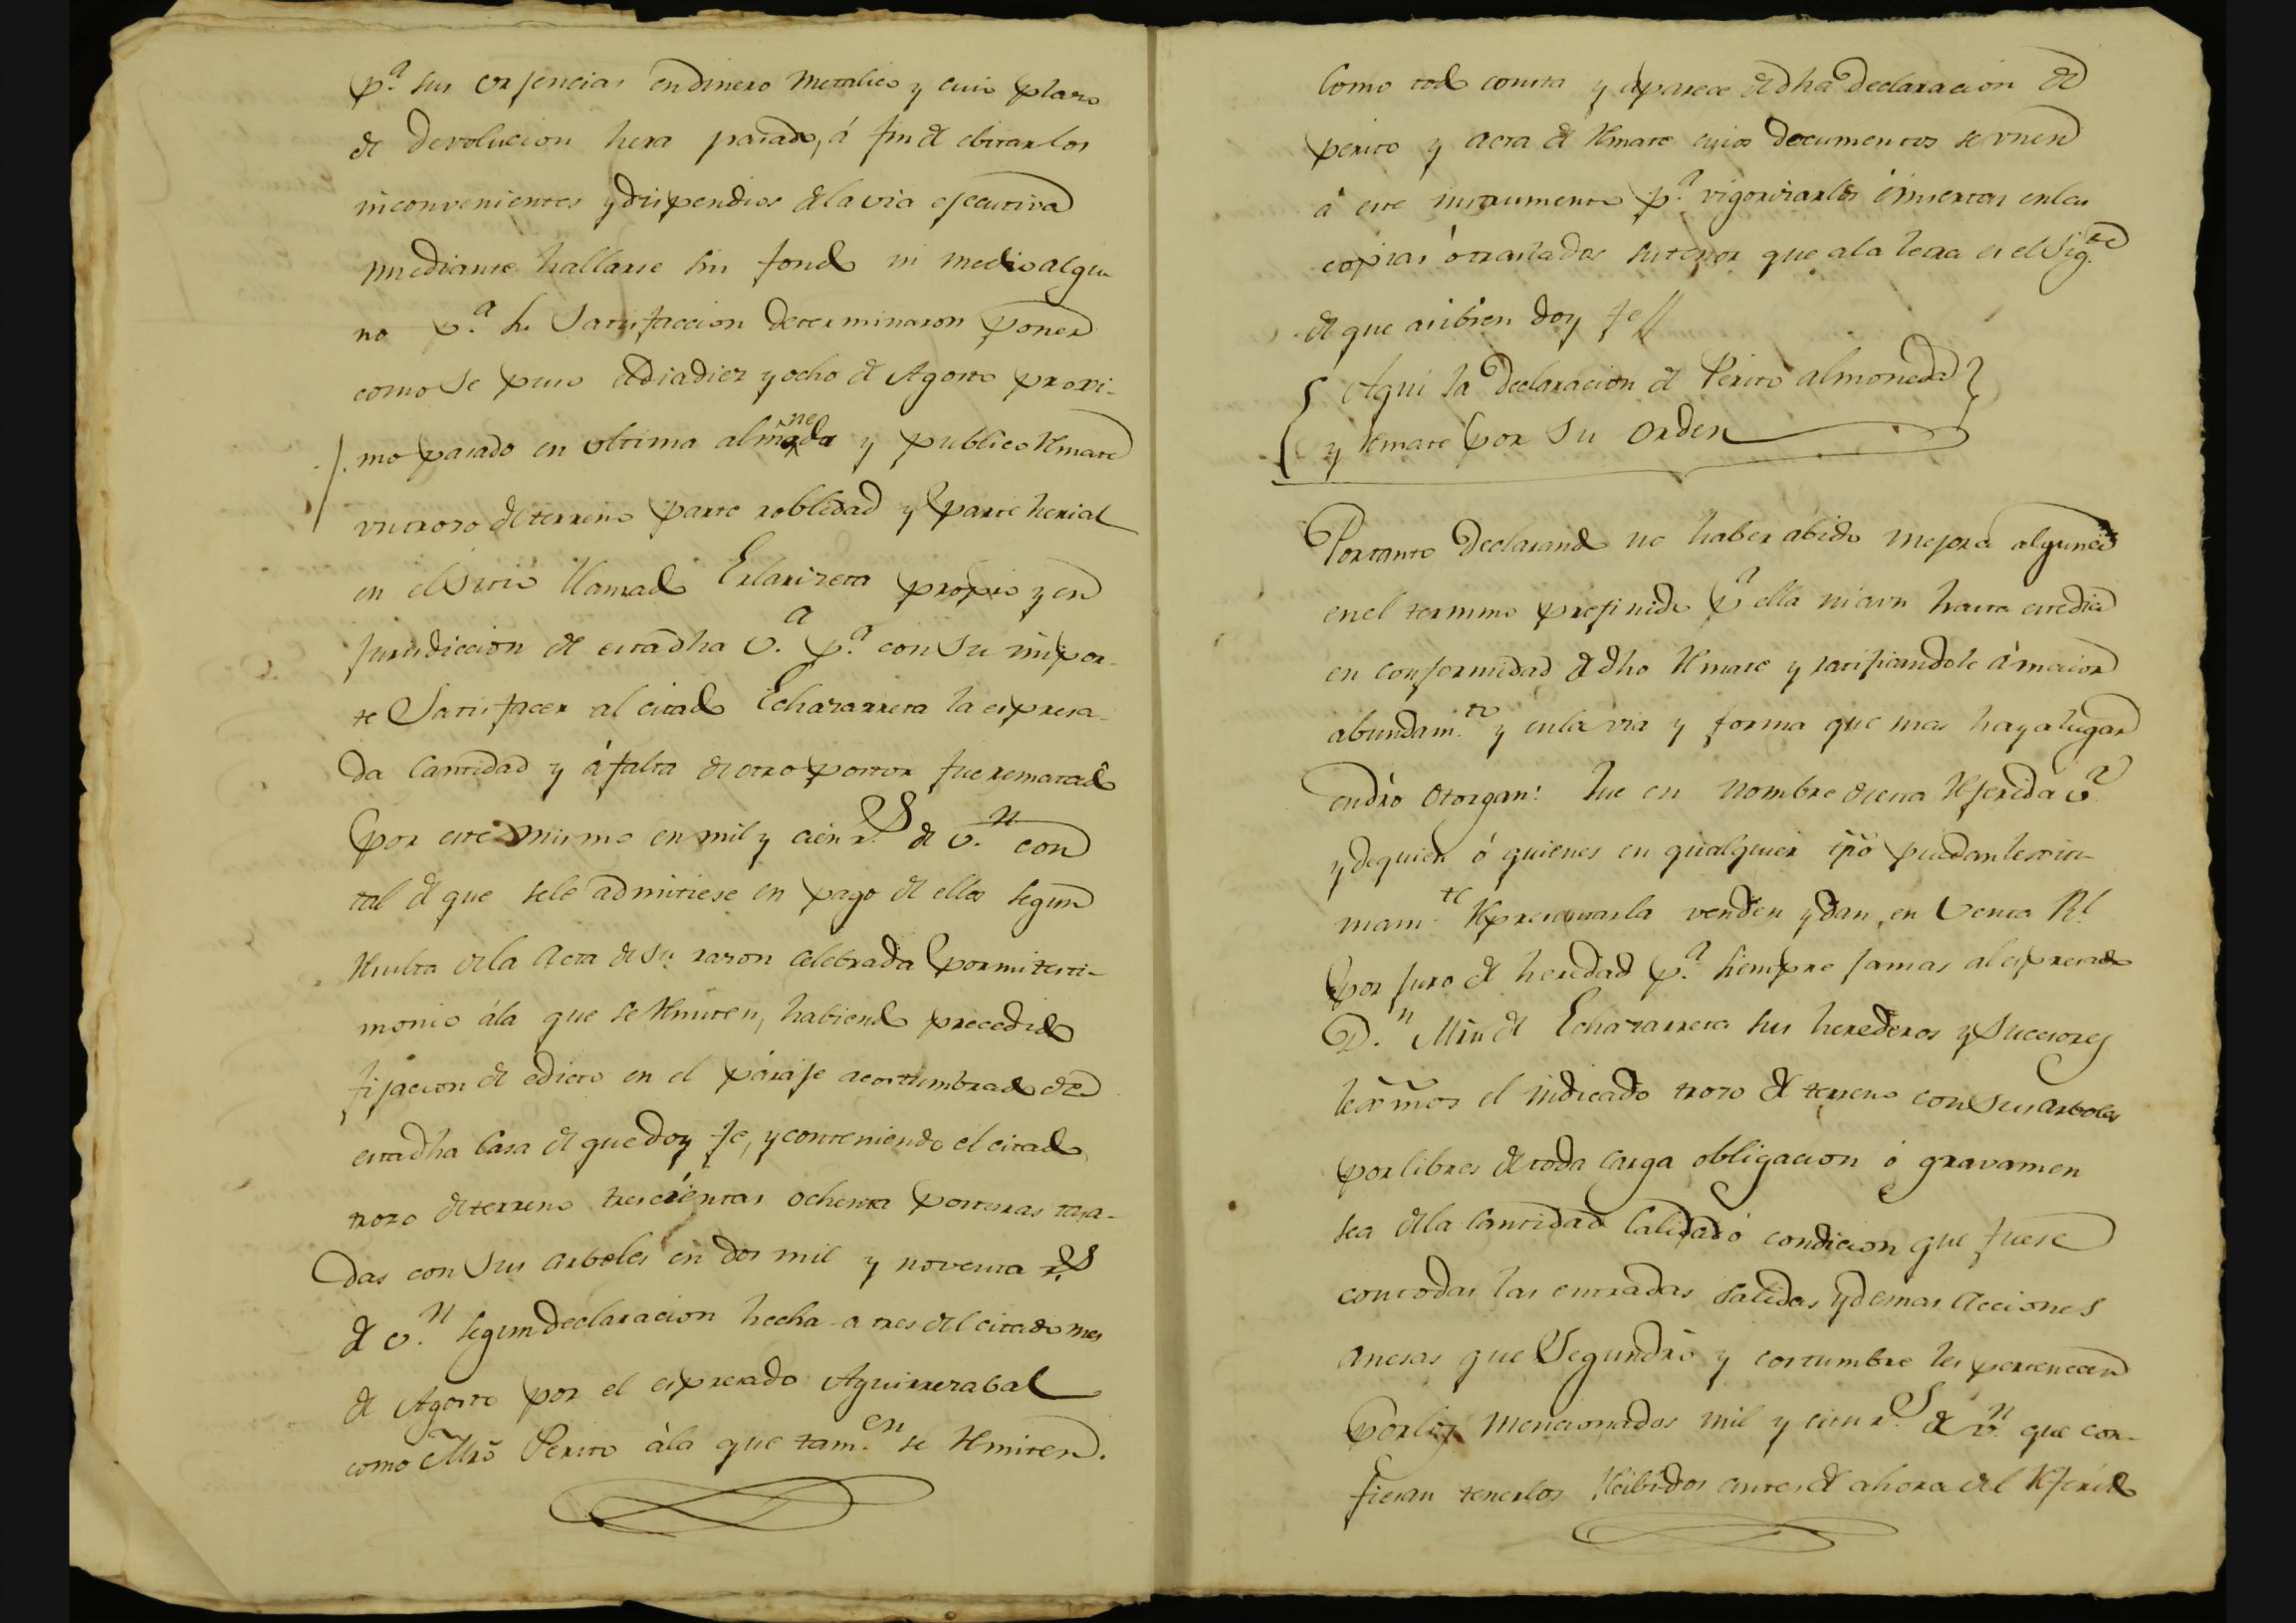 p.ª sus vrjencias endinero metalico y cuio plazo
de devolucion hera pasado, á fin de ebitarlos
inconvenientes y dispendios dela via ejecutiva
mediante hallarse sin fondo ni medio algu
no p.ª su satisfaccion determinaron poner
como se puso el dia diez y ocho de Agosto proxi-
mo pasado en vltima almoneda y publico Rmate
vn trozo de terreno parte robledad y parte herial
en el sitio llamado Erlarizeta propio y en
jurisdiccion de esta dha V.ª p.ª con su impor-
te Satisfacer al citado Echazarreta la espresa-
da Cantidad y á falta de otro postor fue rematado
por este mismo en mil y cien r.s de v.n con
tal de que sele admitiese en pago de ellos segun
Rsulta dela Acta de su razon celebrada por mi testi-
monio ála que se Rmiten, habiendo precedido
fijacion de edicto en el paraje acostumbrado de
esta dha Casa de que doy fe, y conteniendo el citado
trozo de terreno trescientas ochenta posturas tasa-
das con sus arboles en dos mil y noventa rs
de v.n segun declaracion hecha a tres del citado mes
de Agosto por el espresado Aguirrezabal
como Mro Perito ála que tam.en se Rmiten.
Como todo consta y aparece de dha declaracion de
perito y acta de Rmate cuios documentos se vnen
á este instrumento p.ª vigorizarlos é insertar enlas
copias ó traslados su tenor que ala letra es el sig.te
de que asibien doy fe//
Aqui la declaracion de Perito almoneda
y Rmate por su orden
Portanto declarando no haber abido mejora alguna
en el termino prefinido p.ª ella ni aun hasta este dia
en conformidad de dho Rmate y ratificandole á maior
abundam.to y enla via y forma que mas haya lugar
en dro Otorgan: Que en nombre de esta Rferida v.ª
y de quien ó quienes en qualquier tpo puedan lexiti-
mam.te Rpresentarla venden y dan, en venta Rl
por juro de heredad p.ª siempre jamas al espresado
D.n Mrn de Echazarreta sus herederos y succesores
lexmos el indicado trozo de terreno con sus arboles
por libres de toda carga obligacion ó gravamen
sea dela Cantidad Calidad ó condicion que fuese
con todas las entradas salidas y demas acciones
anesas que segun dro y costumbre les pertenecen
por los mencionados mil y cien r.s de v.n que con-
fiesan tenerlos Rcibidos antes de ahora del Rferido